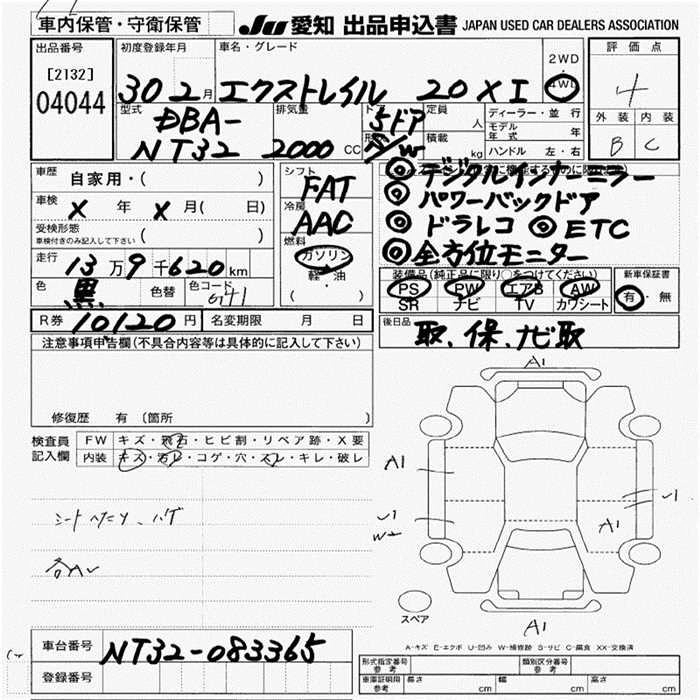 車内保管・守衛保管
JU 愛知 出品申込書 JAPAN USED CAR DEALERS ASSOCIATION
出品番号
[2132]
04044
初度登録年月
30 2月
車名・グレード
エクストレイル 20XI
2WD
・
4WD
評価点
4
外装 内装
B C
型式
DBA-
NT32
排気量
2000 CC
ドア
5ドア
形状
S/W
定員
人
積載
kg
ディーラー・並行
モデル年式 年
ハンドル 左・右
車歴
自家用・( )
車検
X 年 X 月( 日)
受検形態
車検付きのみ記入して下さい
( )
走行
13万9千620km
色
黒
色替
色コード
G41
シフト
FAT
冷房
AAC
燃料
ガソリン
軽・油
・
( )
◎デジタルインナーミラー
◎パワーバックドア
◎ドラレコ ◎ETC
◎全方位モニター
装備品(純正品に限り○をつけてください)
PS PW エアB AW
SR ナビ TV カワシート
新車保証書
有・無
R券 10,120円
名変期限 月 日
後日品
取、保、ナビ取
注意事項申告欄(不具合内容等は具体的に記入して下さい)
修復歴 有 (箇所
検査員
記入欄
FW キズ・飛石・ヒビ割・リペア跡・X要
内装 キズ・汚レ・コゲ・穴・スレ・キレ・破レ
シートヘタリ、ハゲ
各AU
A1
A1
U1
W2
U1
A1
A1
スペア
A-キズ E-エクボ U-凹み W-補修跡 S-サビ C-腐食 XX-交換済
車台番号
NT32-083365
登録番号
形式指定番号
参考
類別区分番号
参考
車庫証明用
参考
長さ cm
幅 cm
高さ cm